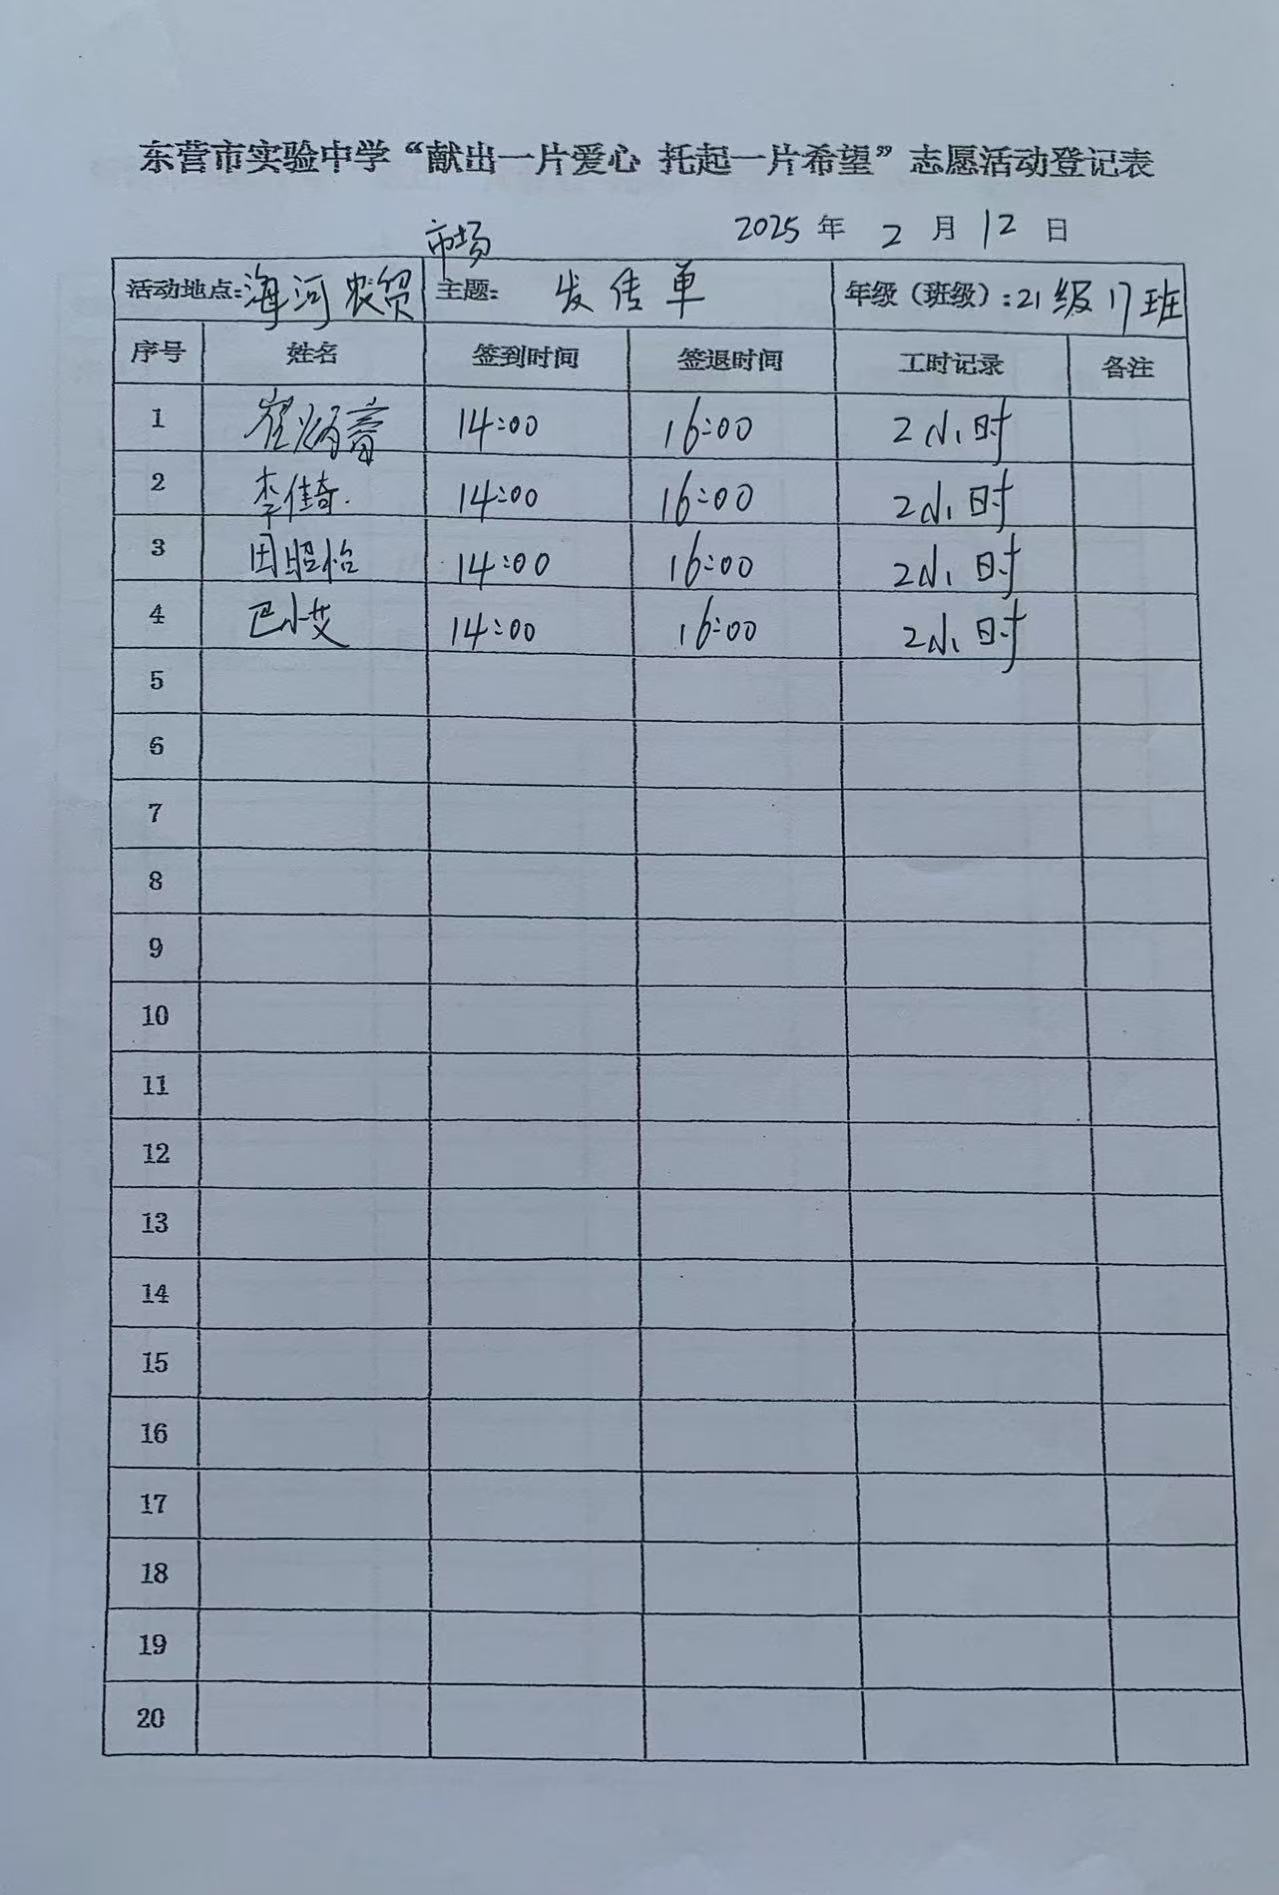 东营市实验中学“献出一片爱心 托起一片希望”志愿活动登记表
2025 年 2 月 12 日
市场
活动地点:海河农贸 主题: 发传单 年级（班级）:21级17班
序号 姓名 签到时间 签退时间 工时记录 备注
1 崔炳 14:00 16:00 2小时
2 李佳奇. 14:00 16:00 2小时
3 田照怡 14:00 16:00 2小时
4 巴小艾 14:00 16:00 2小时
5
6
7
8
9
10
11
12
13
14
15
16
17
18
19
20